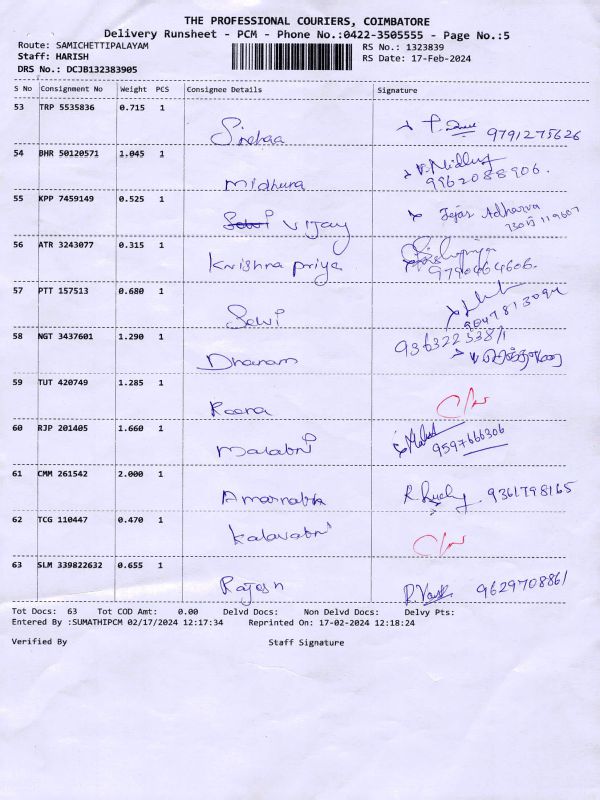 THE PROFESSIONAL COURIERS, COIMBATORE
Delivery Runsheet - PCM - Phone No.:0422-3505555 - Page No.:5
Route: SAMICHETTIPALAYAM RS No.: 1323839
Staff: HARISH RS Date: 17-Feb-2024
DRS No.: DCJB132383905
S No Consignment No Weight PCS Consignee Details Signature
53 TRP 5535836 0.715 1
9791275626
54 BHR 50120571 1.045 1
Midhura V. Midhu
9962088906.
55 KPP 7459149 0.525 1
Selvi Vijay Tejas Adharva
56 ATR 3243077 0.315 1
Krishna priya 9790464606.
57 PTT 157513 0.680 1
Selvi 9047813094
58 NGT 3437601 1.290 1 9363223381
Dhanam
59 TUT 420749 1.285 1
60 RJP 201405 1.660 1
9597666306
61 CMM 261542 2.000 1
9361798165
62 TCG 110447 0.470 1
63 SLM 339822632 0.655 1
Rajesh 9629708861
Tot Docs: 63 Tot COD Amt: 0.00 Delvd Docs: Non Delvd Docs: Delvy Pts:
Entered By :SUMATHIPCM 02/17/2024 12:17:34 Reprinted On: 17-02-2024 12:18:24
Verified By Staff Signature